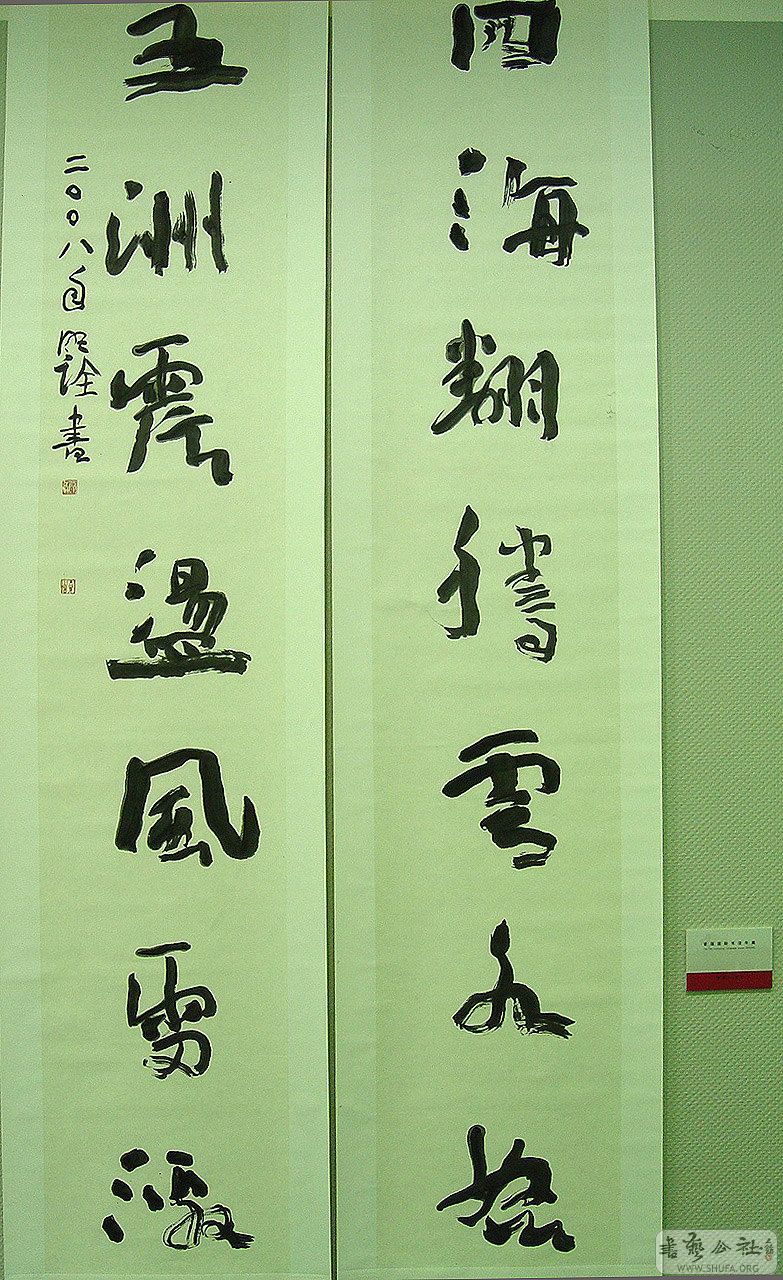 四海翻騰雲水怒
五洲震盪風雷激
二〇〇八年 明詮書
書藝公社
WWW.SHUFA.ORG